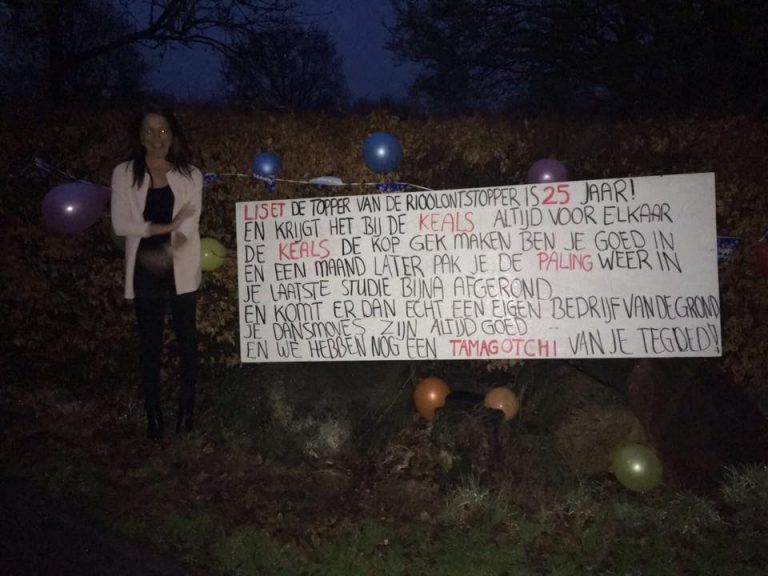 LISET DE TOPPER VAN DE RIOOLONTSTOPPER IS 25 JAAR!
EN KRIJGT HET BIJ DE KEALS ALTIJD VOOR ELKAAR
DE KEALS DE KOP GEK MAKEN BEN JE GOED IN
EN EEN MAAND LATER PAK JE DE PALING WEER IN
JE LAATSTE STUDIE BIJNA AFGEROND
EN KOMT ER DAN ECHT EEN EIGEN BEDRIJF VAN DE GROND
JE DANSMOVES ZIJN ALTIJD GOED
EN WE HEBBEN NOG EEN TAMAGOTCHI VAN JE TEGOED!!